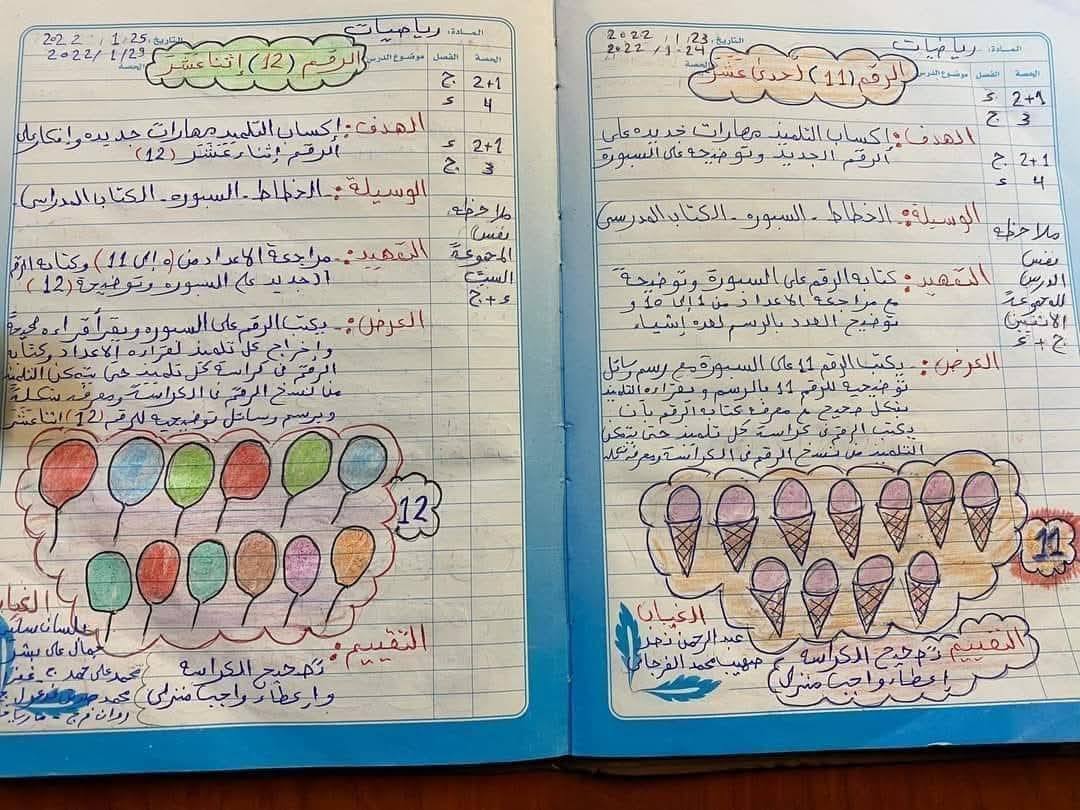 المادة: رياضيات
التاريخ: 2022/1/23
2022/1/24
الحصة الفصل موضوع الدرس
الرقم (11) أحدى عشر
2+1 د
3 ج
2+1 ج
4 د
ملاحظه
نفس
الدرس
للمجموعة
الاثنين
ج + د
الهدف: إكساب التلميذ مهارات جديده على
الرقم الجديد وتوضيحة على السبورة
الوسيلة: الخطاط - السبوره - الكتاب المدرسي
التمهيد: كتابه الرقم على السبورة وتوضيحة
مع مراجعة الاعداد من 1 إلى 10 و
توضيح العدد بالرسم لعدة إشياء
العرض: يكتب الرقم 11 على السبورة مع رسم وسائل
توضيحية للرقم 11 بالرسم ويقراءه التلميذ
بشكل صحيح مع معرفة كتابه الرقم بأن
يكتب الرقم في كراسة كل تلميذ حتى يتمكن
التلميذ من نسخ الرقم في الكراسة ومعرفة شكله
11
الغياب
عبد الرحمن
صهيب محمد الفرجاني
التقييم تصحيح الكراسة
وإعطاء واجب منزلي
المادة: رياضيات
التاريخ: 2022/1/25
2022/1/29
الحصة الفصل موضوع الدرس الحصة
الرقم (12) إثنا عشر
2+1 ج
4 د
2+1 د
3 ج
ملاحظه
نفس
المجموعة
السبت
د + ج
الهدف: إكساب التلميذ مهارات جديده وإفكار على
الرقم إثناء عشر (12)
الوسيلة: الخطاط - السبوره - الكتاب المدراسي
التمهيد: مراجعة الاعداد من (0 إلى 11) وكتابه الرقم
الجديد على السبوره وتوضيحة (12)
العرض: يكتب الرقم على السبوره ويقرأ قراءه صحيحة
وإخراج كل تلميذ لقراءه الاعداد وكتابه
الرقم في كراسة كل تلميذ حتى يتمكن التلميذ
من نسخ الرقم في الكراسة ومعرفه شكلة
ويرسم وسائل توضحية للرقم (12) إثنا عشر
12
الغياب
محمد علي
التقييم:
تصحيح الكراسة
وإعطاء واجب منزلي